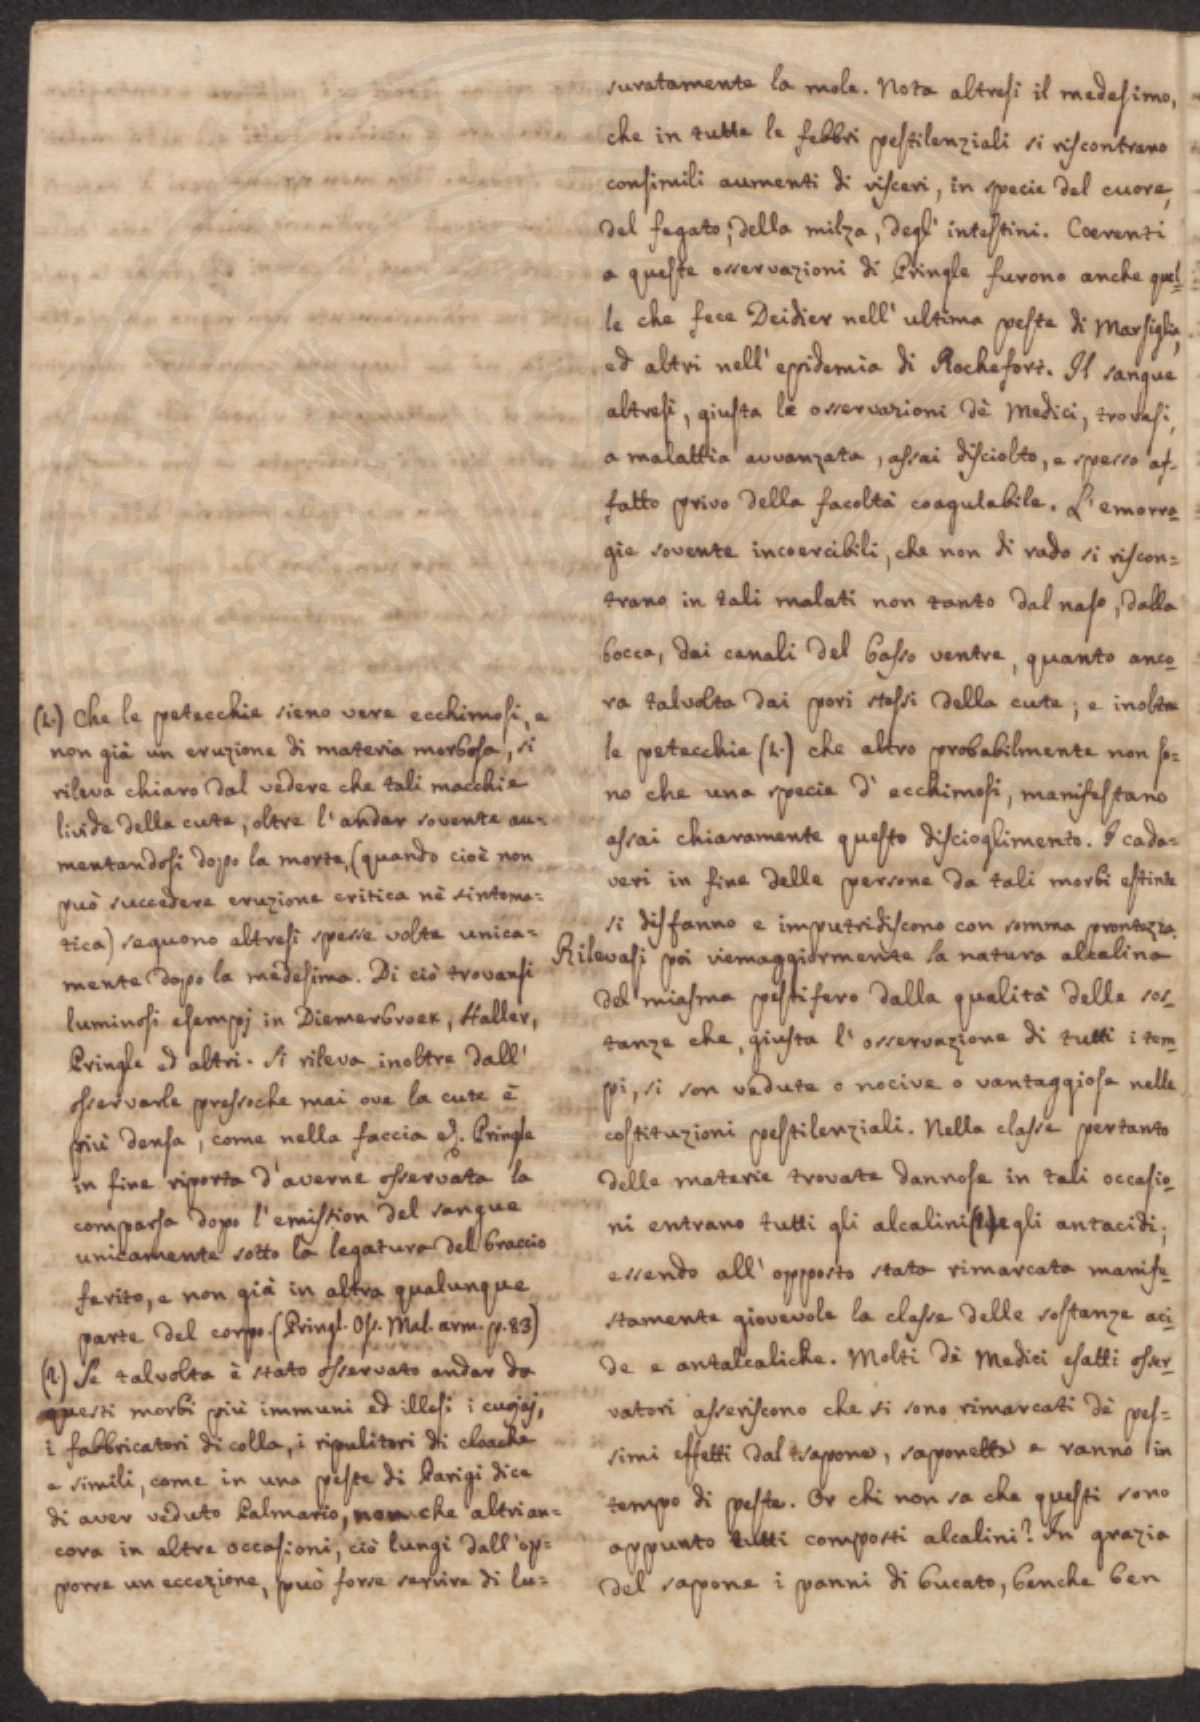 suratamente la mole. Nota altresi il medesimo,
che in tutte le febbri pestilenziali si riscontrano
consimili aumenti di visceri, in specie del cuore,
del fegato, della milza, degl' intestini. Coerenti
a queste osservazioni di Pringle furono anche quel=
le che fece Deidier nell' ultima peste di Marsiglia,
ed altri nell' epidemia di Rochefort. Il sangue
altresi, giusta le osservazioni dè Medici, trovasi,
a malattia avvanzata, assai disciolto, e spesso af=
fatto privo della facoltà coagulabile. L' emorra=
gie sovente incoercibili, che non di rado si riscon=
trano in tali malati non tanto dal naso, dalla
bocca, dai canali del basso ventre, quanto anco=
ra talvolta dai pori stessi della cute; e inoltre
le petecchie (k.) che altro probabilmente non so=
no che una specie d' ecchimosi, manifestano
assai chiaramente questo discioglimento. I cada=
veri in fine delle persone da tali morbi estinte
si disfanno e imputridiscono con somma prontezza.
Rilevasi poi viemaggiormente la natura alcalina
del miasma pestifero dalla qualità delle sos=
tanze che, giusta l' osservazione di tutti i tem=
pi, si son vedute o nocive o vantaggiose nelle
costituzioni pestilenziali. Nella classe pertanto
delle materie trovate dannose in tali occasio=
ni entrano tutti gli alcalini (l) e gli antacidi;
essendo all' opposto stata rimarcata manife=
stamente giovevole la classe delle sostanze aci=
de e antalcaliche. Molti dè Medici esatti osser=
vatori asseriscono che si sono rimarcati dè pes=
simi effetti dal sapone, saponette e ranno in
tempo di peste. Or chi non sa che questi sono
appunto tutti composti alcalini? In grazia
del sapone i panni di bucato, benche ben
(k.) Che le petecchie sieno vere ecchimosi, e
non già un eruzione di materia morbosa, si
rileva chiaro dal vedere che tali macchie
livide della cute, oltre l' andar sovente au=
mentandosi dopo la morte, (quando cioè non
può succedere eruzione critica nè sintoma=
tica) seguono altresi spesse volte unica=
mente dopo la medesima. Di ciò trovansi
luminosi esempj in Diemerbroek, Haller,
Pringle ed altri. Si rileva inoltre dall'
osservarle pressoche mai ove la cute è
più densa, come nella faccia &. Pringle
in fine riporta d' averne osservata la
comparsa dopo l' emission del sangue
unicamente sotto la legatura del braccio
ferito, e non già in altra qualunque
parte del corpo. (Pringl. Oss. Mal. arm. p. 83)
(l) Se talvolta è stato osservato andar da
questi morbi più immuni ed illesi i cuojaj,
i fabbricatori di colla, i ripulitori di cloache
e simili, come in una peste di Parigi dice
di aver veduto Palmario, nonche altri an=
cora in altre occasioni, ciò lungi dall' op=
porre un eccezione, può forse servire di lu=